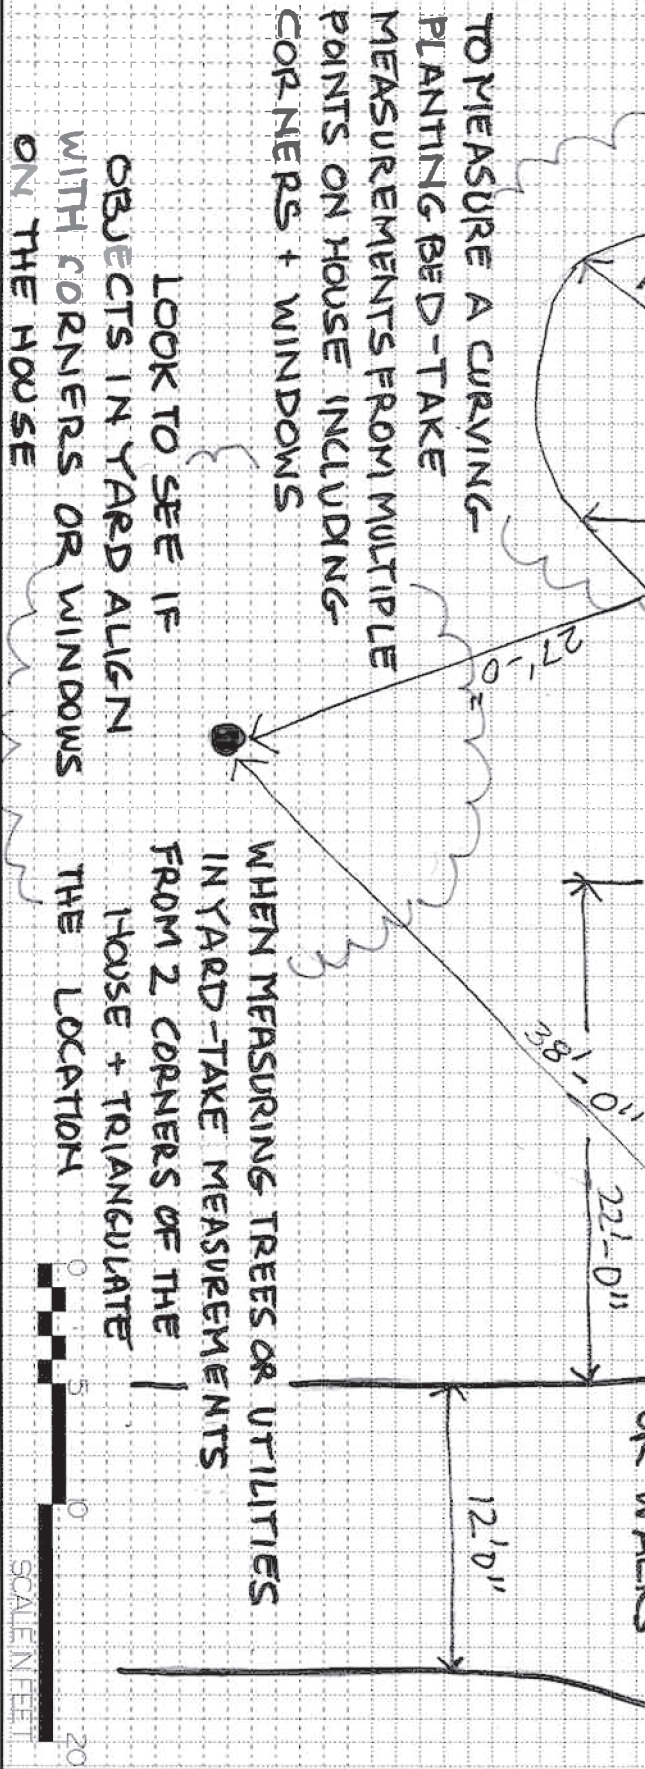 TO MEASURE A CURVING
PLANTING BED-TAKE
MEASUREMENTS FROM MULTIPLE
POINTS ON HOUSE INCLUDING
CORNERS + WINDOWS
LOOK TO SEE IF
OBJECTS IN YARD ALIGN
WITH CORNERS OR WINDOWS
ON THE HOUSE
27'-0"
38'-0"
22'-0"
OR WALKS
12'0"
WHEN MEASURING TREES OR UTILITIES
IN YARD-TAKE MEASUREMENTS
FROM 2 CORNERS OF THE
HOUSE + TRIANGULATE
THE LOCATION
0 5 10 20
SCALE IN FEET